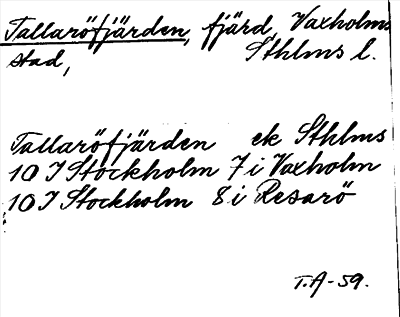 Tallaröfjärden, fjärd, Vaxholms
stad, Sthlms l.
Tallaröfjärden ek Sthlms
10 I Stockholm 7 i Vaxholm
10 I Stockholm 8 i Resarö
T.A-59.